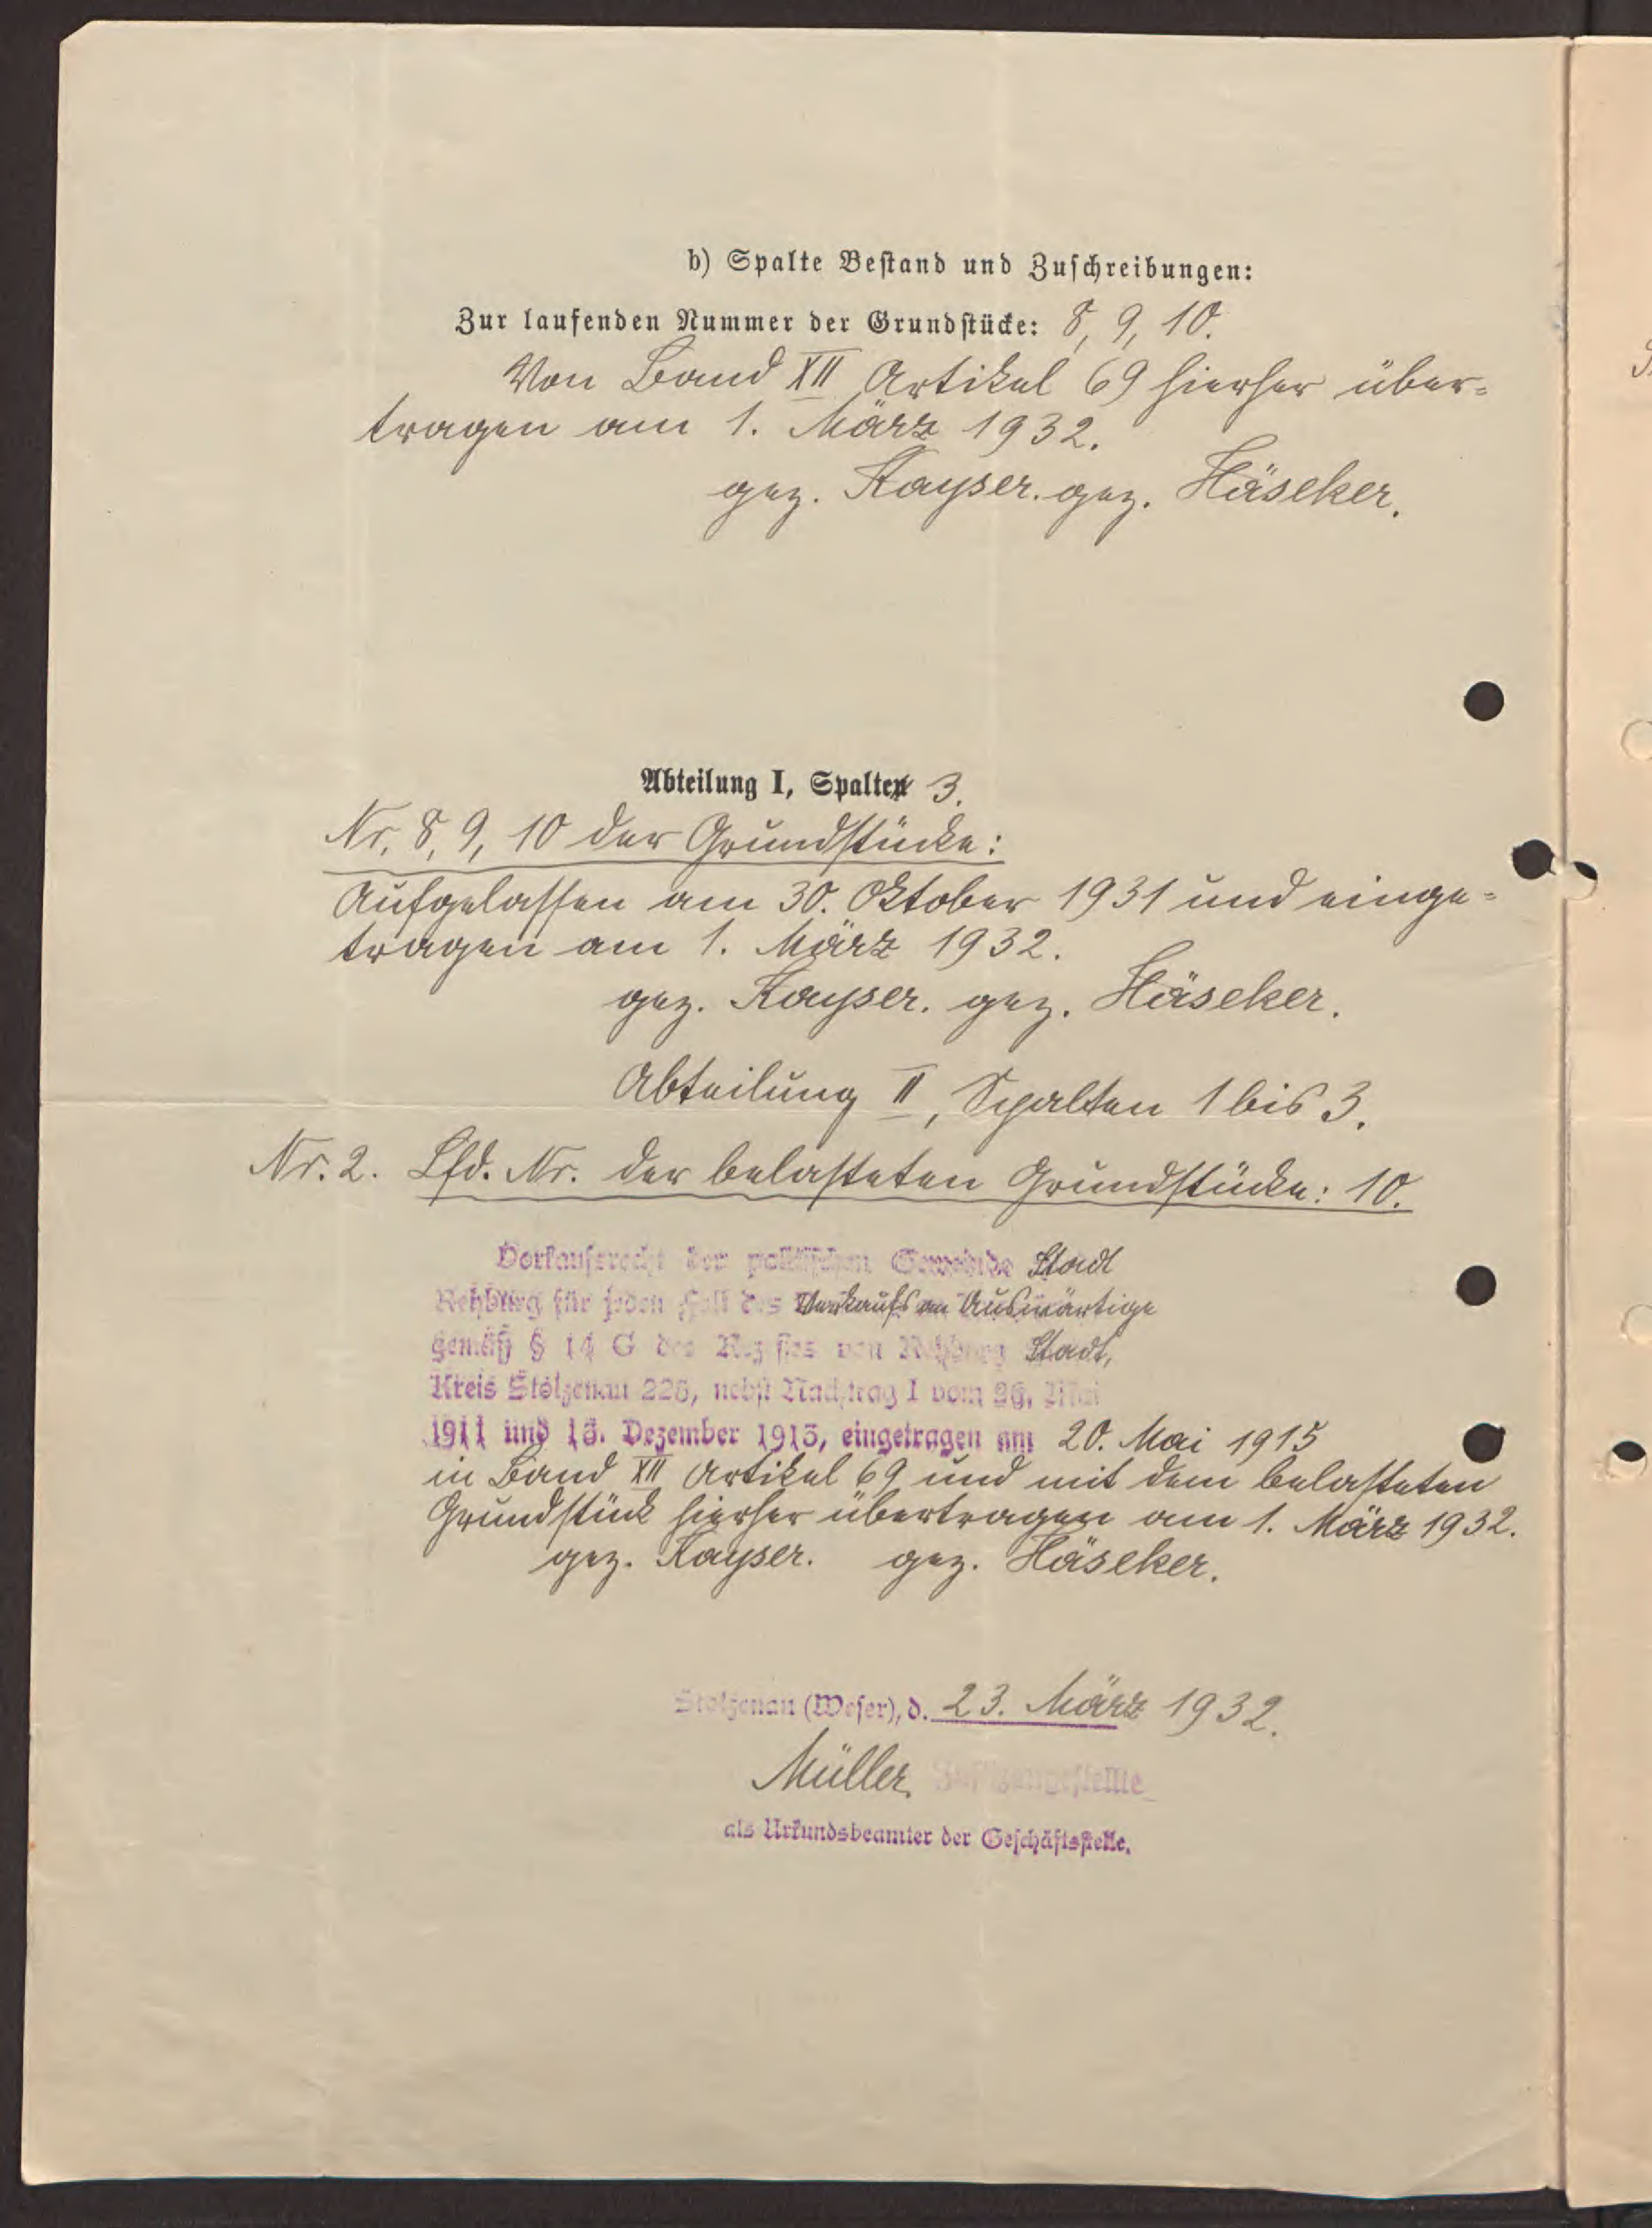 b) Spalte Bestand und Zuschreibungen:
Zur laufenden Nummer der Grundstücke: 8, 9, 10.
Von Band XII Artikel 69 hierher über-
tragen am 1. März 1932.
gez. Kayser. gez. Häseker.
Abteilung I, Spalte 3.
Nr. 8, 9, 10 der Grundstücke:
Aufgelassen am 30. Oktober 1931 und einge-
tragen am 1. März 1932.
gez. Kayser. gez. Häseker.
Abteilung II, Spalten 1 bis 3.
Nr. 2. Lfd. Nr. der belasteten Grundstücke: 10.
Vorkaufsrecht der politischen Gemeinde Stadt
Rehburg für jeden Fall des Verkaufs an Auswärtige
gemäß § 14 G des Rezesses von Rehburg Stadt,
Kreis Stolzenau 226, nebst Nachtrag I vom 26. Mai
1911 und 13. Dezember 1913, eingetragen am 20. Mai 1915
in Band XII Artikel 69 und mit dem belasteten
Grundstück hierher übertragen am 1. März 1932.
gez. Kayser. gez. Häseker.
Stolzenau (Weser), d. 23. März 1932.
Müller, Justizangestellte
als Urkundsbeamter der Geschäftsstelle.